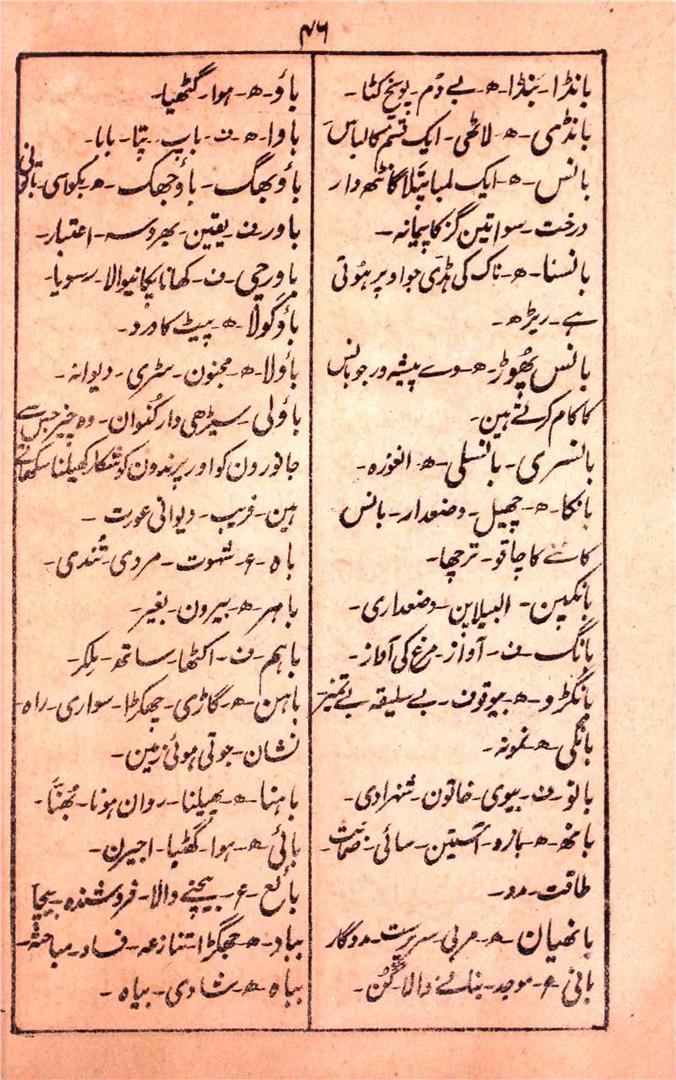 ۴۶
بانڈا۔ بنڈا۔ ھ۔ بے دُم۔ پونچ کٹا۔
بانڈی۔ ھ۔ لاٹھی۔ ایک قسم کا لباس
بانس۔ ھ۔ ایک لمبا پتلا گانٹھ دار
درخت۔ سوا تین گز کا پیمانہ۔
بانسنا۔ ھ۔ ناک کی ہڈی جو اوپر ہوتی
ہے۔ ریڑھ۔
بانس پھوڑ۔ ھ۔ وے پیشہ ور جو بانس
کا کام کرتے ہین۔
بانسری۔ بانسلی۔ ھ۔ الغوزہ۔
بانکا۔ ھ۔ چھیل۔ وضعدار۔ بانس
کاٹنے کا چاقو۔ ترچھا۔
بانکپن۔ البیلاپن۔ وضعداری۔
بانگ۔ ف۔ آواز۔ مرغ کی آواز۔
بانگڑو۔ ھ۔ بیوقوف۔ بے سلیقہ بے تمیز۔
بانگی۔ ھ۔ نمونہ۔
بانو۔ ف۔ بیوی۔ خاتون۔ شہزادی۔
بانھ۔ ھ۔ بازو۔ آستین۔ سائی۔ ضمانت۔
طاقت۔ مدد۔
بانھیان۔ ھ۔ مربی سرپرست۔ مددگار
بانی۔ ع۔ موجد۔ بنانے والا۔
باؤ۔ ھ۔ ہوا۔ گٹھیا۔
باوا۔ ھ۔ ف۔ باپ۔ پتا۔ بابا۔
باؤبھگ۔ باؤجھک۔ ھ۔ بکواسی۔ باتونی
باور۔ ف۔ یقین۔ بھروسہ۔ اعتبار۔
باورچی۔ ف۔ کھانا پکانیوالا۔ رسویا۔
باؤگولا۔ ھ۔ پیٹ کا درد۔
باؤلا۔ ھ۔ مجنون۔ سڑی۔ دیوانہ۔
باؤلی۔ سیڑھی دار کنوان۔ وہ چیز جس سے
جانورون کو اور پرندون کو شکار کھیلنا سکھاتے
ہین۔ فریب۔ دیوانی عورت۔
باہ۔ ع۔ شہوت۔ مردی۔ تُندی۔
باہر۔ ھ۔ بیرون۔ بغیر۔
باہم۔ ف۔ اکٹھا۔ ساتھ۔ ملکر۔
باہن۔ ھ۔ گاڑی۔ چھکڑا۔ سواری۔ راہ۔
نشان۔ جوتی ہوئی زمین۔
باہنا۔ ھ۔ پھیلنا۔ روان ہونا۔
بائی۔ ھ۔ ہوا۔ گٹھیا۔ اجیرن۔
بائع۔ ع۔ بیچنے والا۔ فروشندہ۔
بباد۔ ھ۔ جھگڑا تنازعہ۔ فساد۔ مباحثہ۔
بباہ۔ ھ۔ شادی۔ بیاہ۔